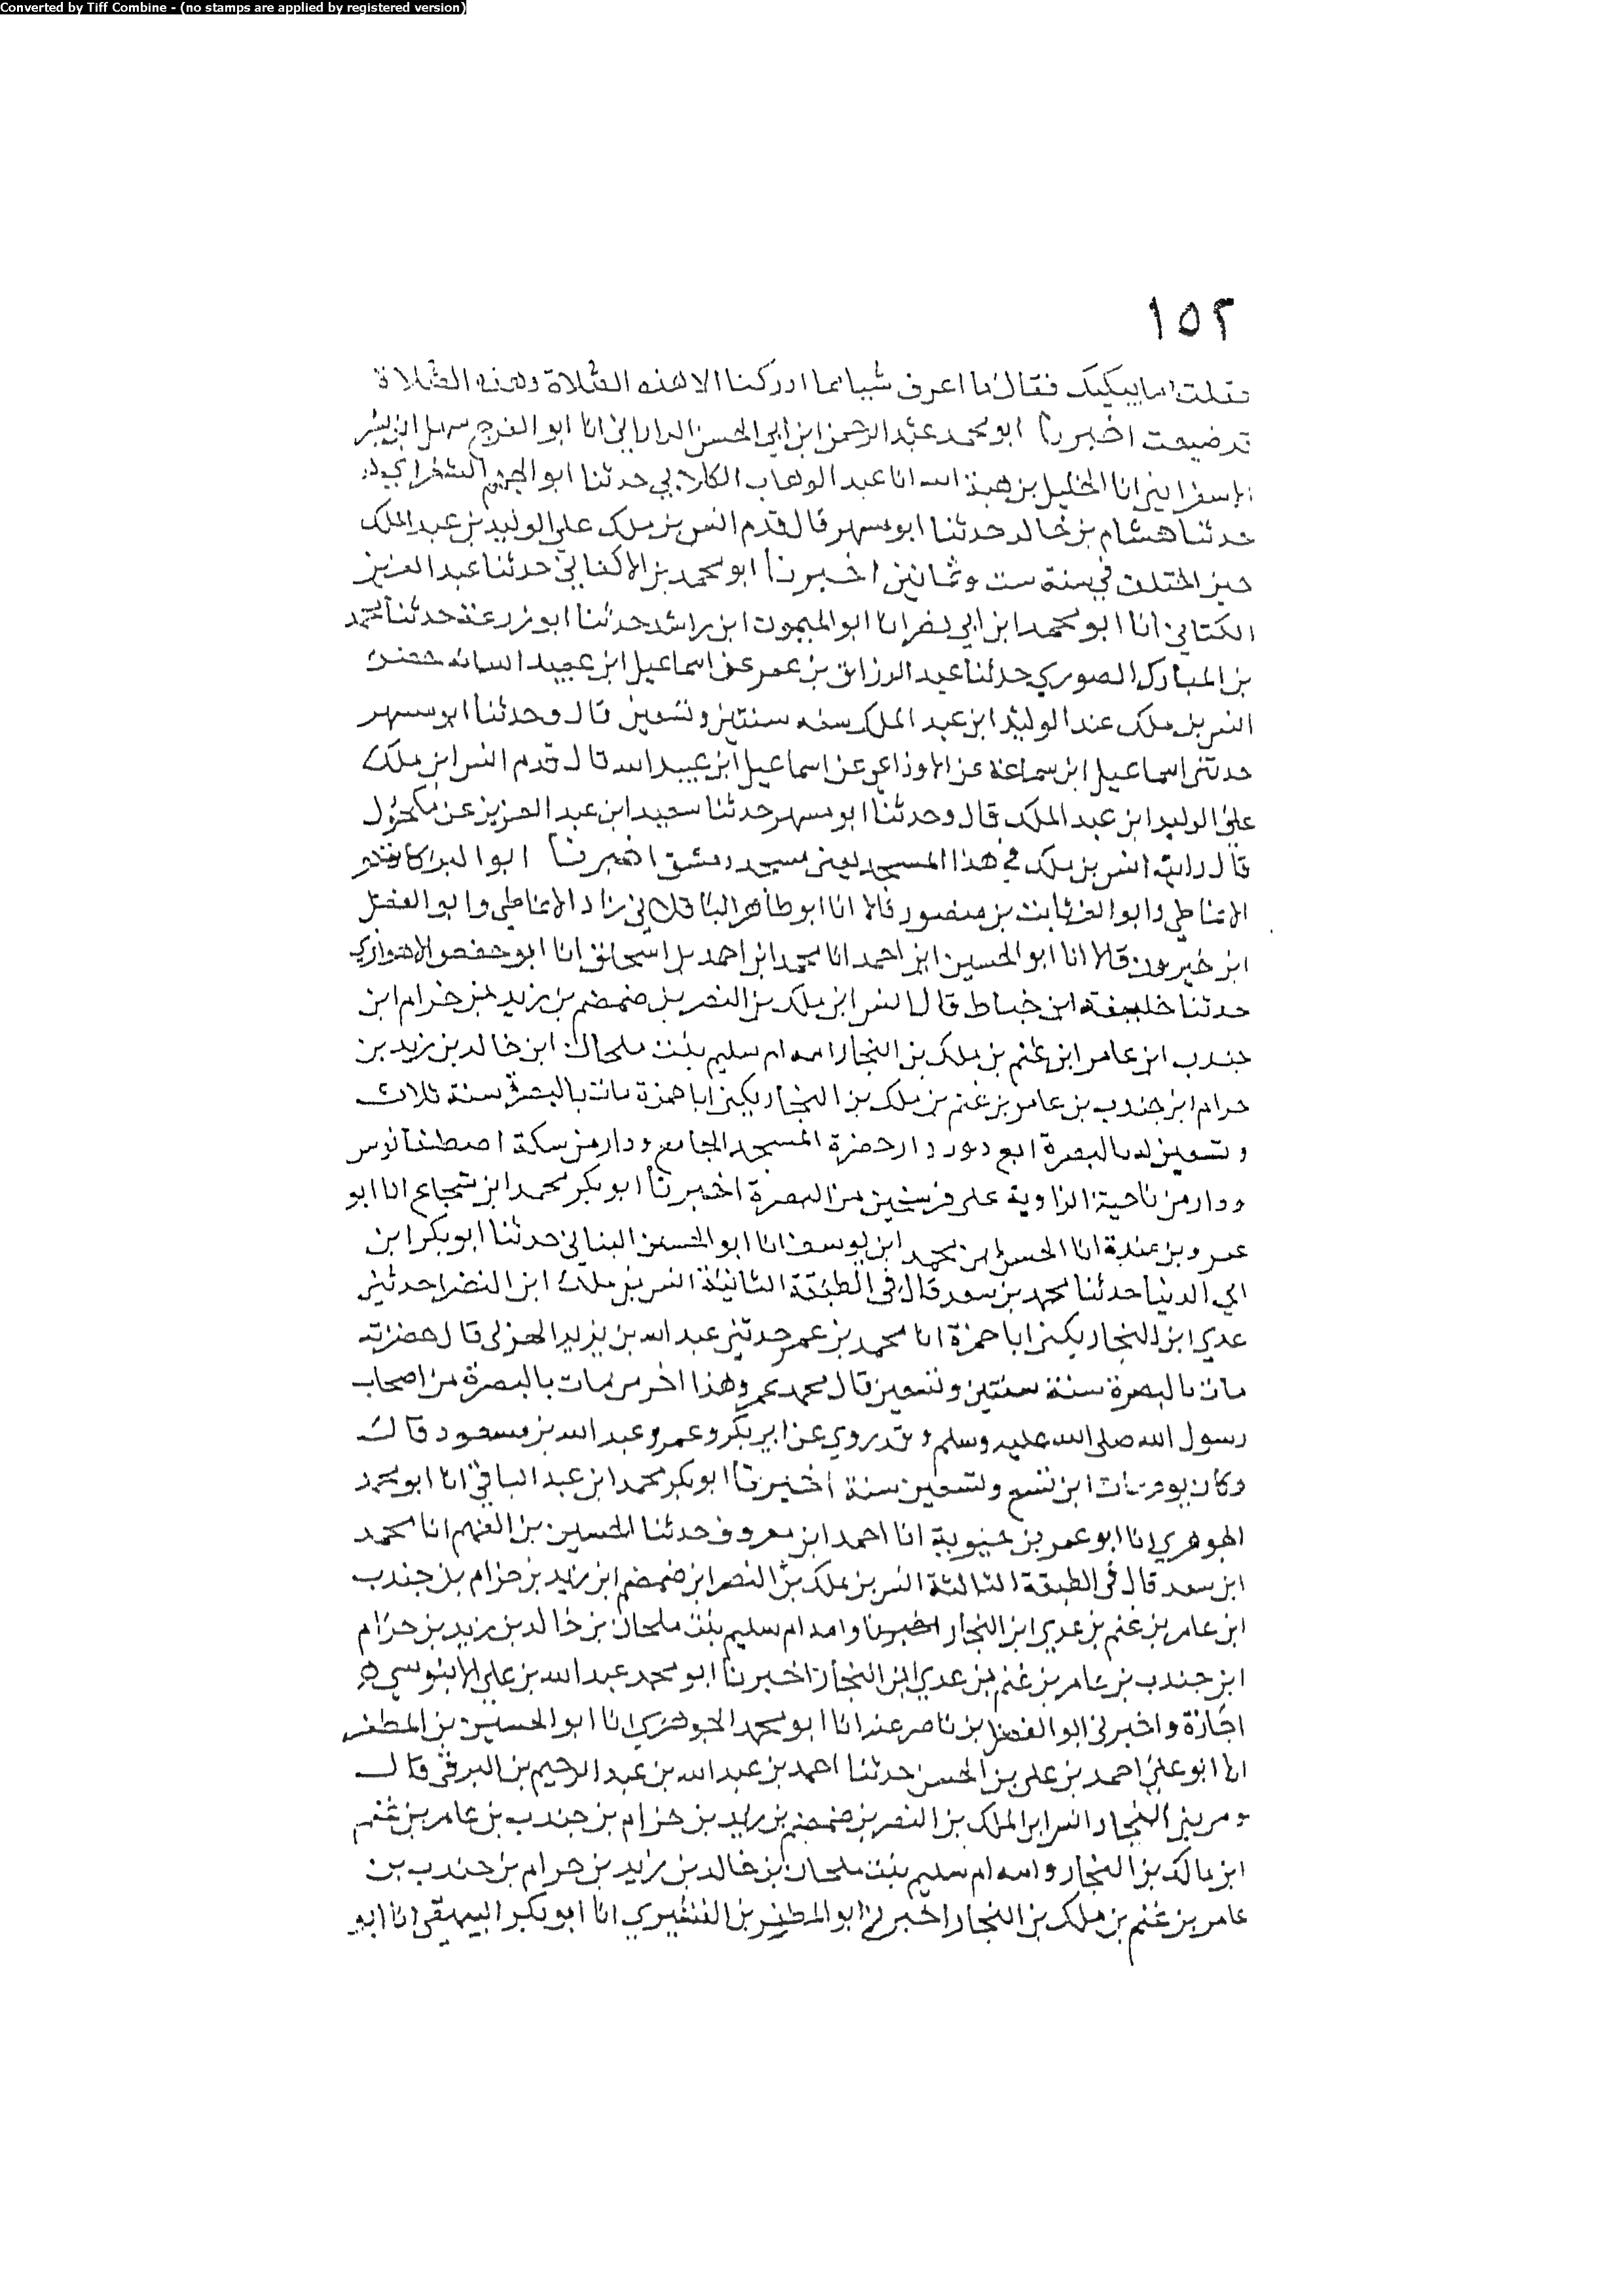 Converted by Tiff Combine - (no stamps are applied by registered version)
١٥٢
فقلت ما يبكيك فقال ما اعرف شيا مما ادركنا الا هذه الصلاة وهذه الصلاة
قد ضيعت اخبرنا ابو محمد عبد الرحمن ابن ابي الحسن الداراني انا ابو الفرج سهل ابن بشر
الاسفرايني انا الخليل بن هبة الله انا عبد الوهاب الكلابي حدثنا ابو الجهم
حدثنا هشام بن خالد حدثنا ابو مسهر قال قدم انس بن ملك على الوليد بن عبد الملك
حين استخلف في سنة ست وثمانين اخبرنا ابو محمد بن الاكفاني حدثنا عبد العزيز
الكتاني انا ابو محمد ابن ابي نصر انا ابو الميمون ابن راشد حدثنا ابو زرعة حدثنا محمد
بن المبارك الصوري حدثنا عبد الرزاق بن عمر عن اسماعيل ابن عبيد الله
انس بن ملك عند الوليد ابن عبد الملك سنه سنتين وتسعين قال وحدثنا ابو مسهر
حدثني اسماعيل ابن سماعة عن الاوذاعي عن اسماعيل ابن عبيد الله قال قدم انس ابن ملك
على الوليد ابن عبد الملك قال وحدثنا ابو مسهر حدثنا سعيد ابن عبد العزيز عن مكحول
قال رايت انس بن ملك في هذا المسجد يعني مسجد دمشق اخبرنا ابو البركات
الانماطي وابو العز ثابت بن منصور قالا انا ابو طاهر الباقلاني زاد الانماطي وابو الفضل
ابن خيرون قالا انا ابو الحسين ابن احمد انا محمد ابن احمد بن اسحاق انا ابو حفص الاهوازي
حدثنا خليفة ابن خياط قال انس ابن ملك بن النضر بن ضمضم بن زيد بن حرام ابن
جندب ابن عامر ابن غنم بن ملك بن النجار امه ام سليم بنت ملحان ابن خالد بن زيد بن
حرام ابن جندب بن عامر بن غنم بن ملك بن النجار يكنى ابا حمزة مات بالبصرة سنة ثلاث
وتسعين له بالبصرة اربع دور دار حضرة المسجد الجامع ودار من سكة اصطفانوس
ودار من ناحية الزاوية على فرسخين من البصرة اخبرنا ابو بكر محمد ابن شجاع انا ابو
عمرو بن مندة انا الحسن ابن محمد ابن يوسف انا ابو الحسن البناني حدثنا ابو بكر ابن
ابي الدنيا حدثنا محمد بن سعد قال في الطبقة الثانية انس بن ملك ابن النضر احد بني
عدي ابن النجار يكنى ابا حمزة انا محمد بن عمر حدثني عبد الله بن يزيد الهذلي قال حضرته
مات بالبصرة سنة سنتين وتسعين قال محمد عمر وهذا اخر من مات بالبصرة من اصحاب
رسول الله صلى الله عليه وسلم وقد روي عن ابي بكر وعمر وعبد الله بن مسعود قال
وكان يوم مات ابن تسع وتسعين سنة اخبرنا ابو بكر محمد ابن عبد الباقي انا ابو محمد
الجوهري انا ابو عمر بن حيوية انا احمد ابن معروف حدثنا الحسين بن الفهم انا محمد
ابن سعد قال في الطبقة الثالثة انس بن ملك بن النضر ابن ضمضم ابن زيد بن حرام بن جندب
ابن عامر بن غنم بن عدي ابن النجار اخبرنا وامه ام سليم بنت ملحان بن خالد بن زيد بن حرام
ابن جندب بن عامر بن غنم بن عدي ابن النجار اخبرنا ابو محمد عبد الله بن علي الابنوسي
اجازة واخبرني ابو الفضل بن ناصر عنه انا ابو محمد الجوهري انا ابو الحسين بن المظفر
انا ابو علي احمد بن علي بن الحسن حدثنا احمد بن عبد الله بن عبد الرحيم بن البرقي قال
ومن بني النجار انس ابن الملك بن النضر بن ضمضم بن زيد بن حرام بن جندب بن عامر بن غنم
ابن مالك بن النجار وامه ام سليم بنت ملحان بن خالد بن زيد بن حرام بن جندب بن
عامر بن غنم بن ملك بن النجار اخبرنا ابو المظفر بن القشيري انا ابو بكر البيهقي انا ابو